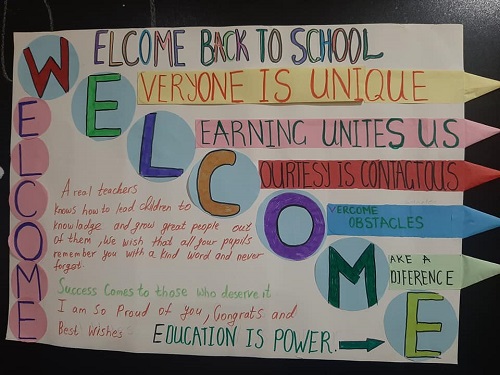 WELCOME BACK TO SCHOOL
EVERYONE IS UNIQUE
LEARNING UNITES US
COURTIESY IS CONTAGTOUS
OVERCOME
OBSTACLES
MAKE A
DIFERENCE
E
E
L
C
O
M
E
A real teachers
knows how to lead children to
knowladge and grow great people out
of them, We wish that all your pupils
remember you with a kind word and never
forgot
Success comes to those who deserve it
I am So Proud of you, Congrats and
Best Wishes
EDUCATION IS POWER.